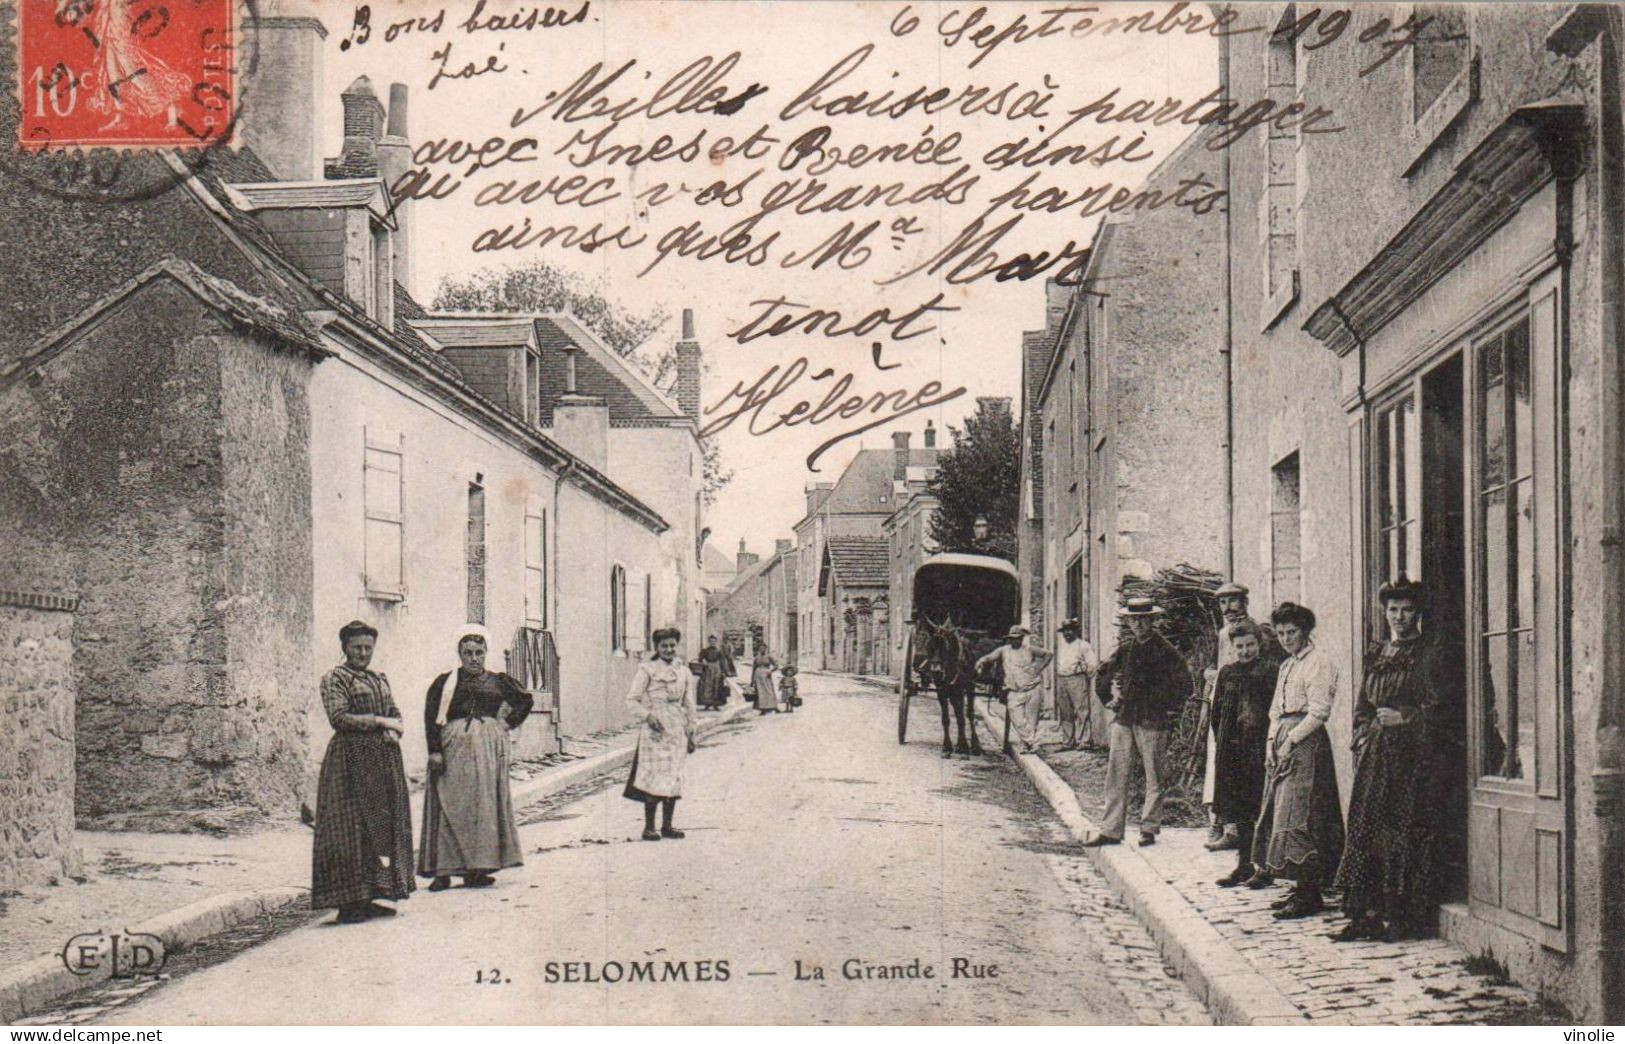 10c
POSTES
Bons baisers.
Zoé.
6 Septembre 1907
Milles baisers à partager
avec Ines et Renée ainsi
qu'avec vos grands parents.
ainsi ques Mª Mar
tenot.
Hélène
E.L.D
12. SELOMMES — La Grande Rue
vinolie